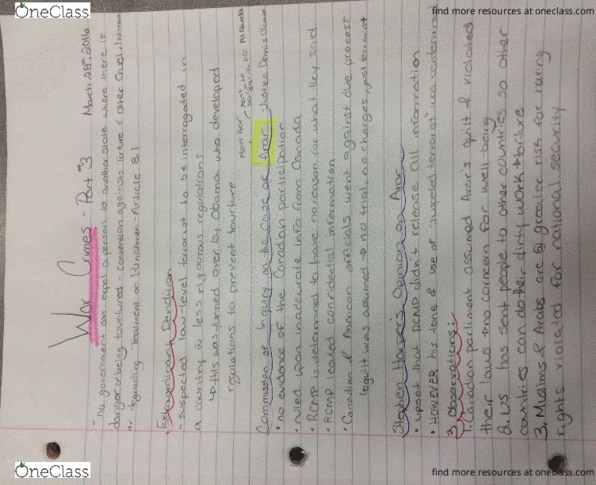 OneClass
find more resources at oneclass.com
War Crimes - Part 3 March 28th, 2016
- no government can expel a person to another state where there is
danger of being tortured - Convention against torture & other Cruel, Inhuman
or degrading treatment or Punishment - Article 3.1
Extraordinary Rendition
- suspected low-level terrorist to be interrogated in
a country w less rigorous regulations
↳ this was turned over by Obama who developed
regulations to prevent tourture
Maher Arar sent to
Commission of Inquiry on the Case of Arar
• no evidence of the Canadian participation
• relied upon inaccurate info from Canada
• RCMP is determined to have no reason for what they said
• RCMP leaked confidential information
• Canadian & American officials went against due process
↳ guilt was assumed → no trial, no charges, not terrorist
Stephen Harper's Opinion on Arar
• upset that RCMP didn't release all information
• HOWEVER his tone & use of "suspected terrorist" was
3 observations:
1. Canadian parliament assumed Arar's guilt & violated
their laws & no concern for well being
2. US has sent people to other countries so other
countries can do their dirty work & torture
3. Muslims & Arabs are @ greater risk for having
rights violated for national security
OneClass
find more resources at oneclass.com